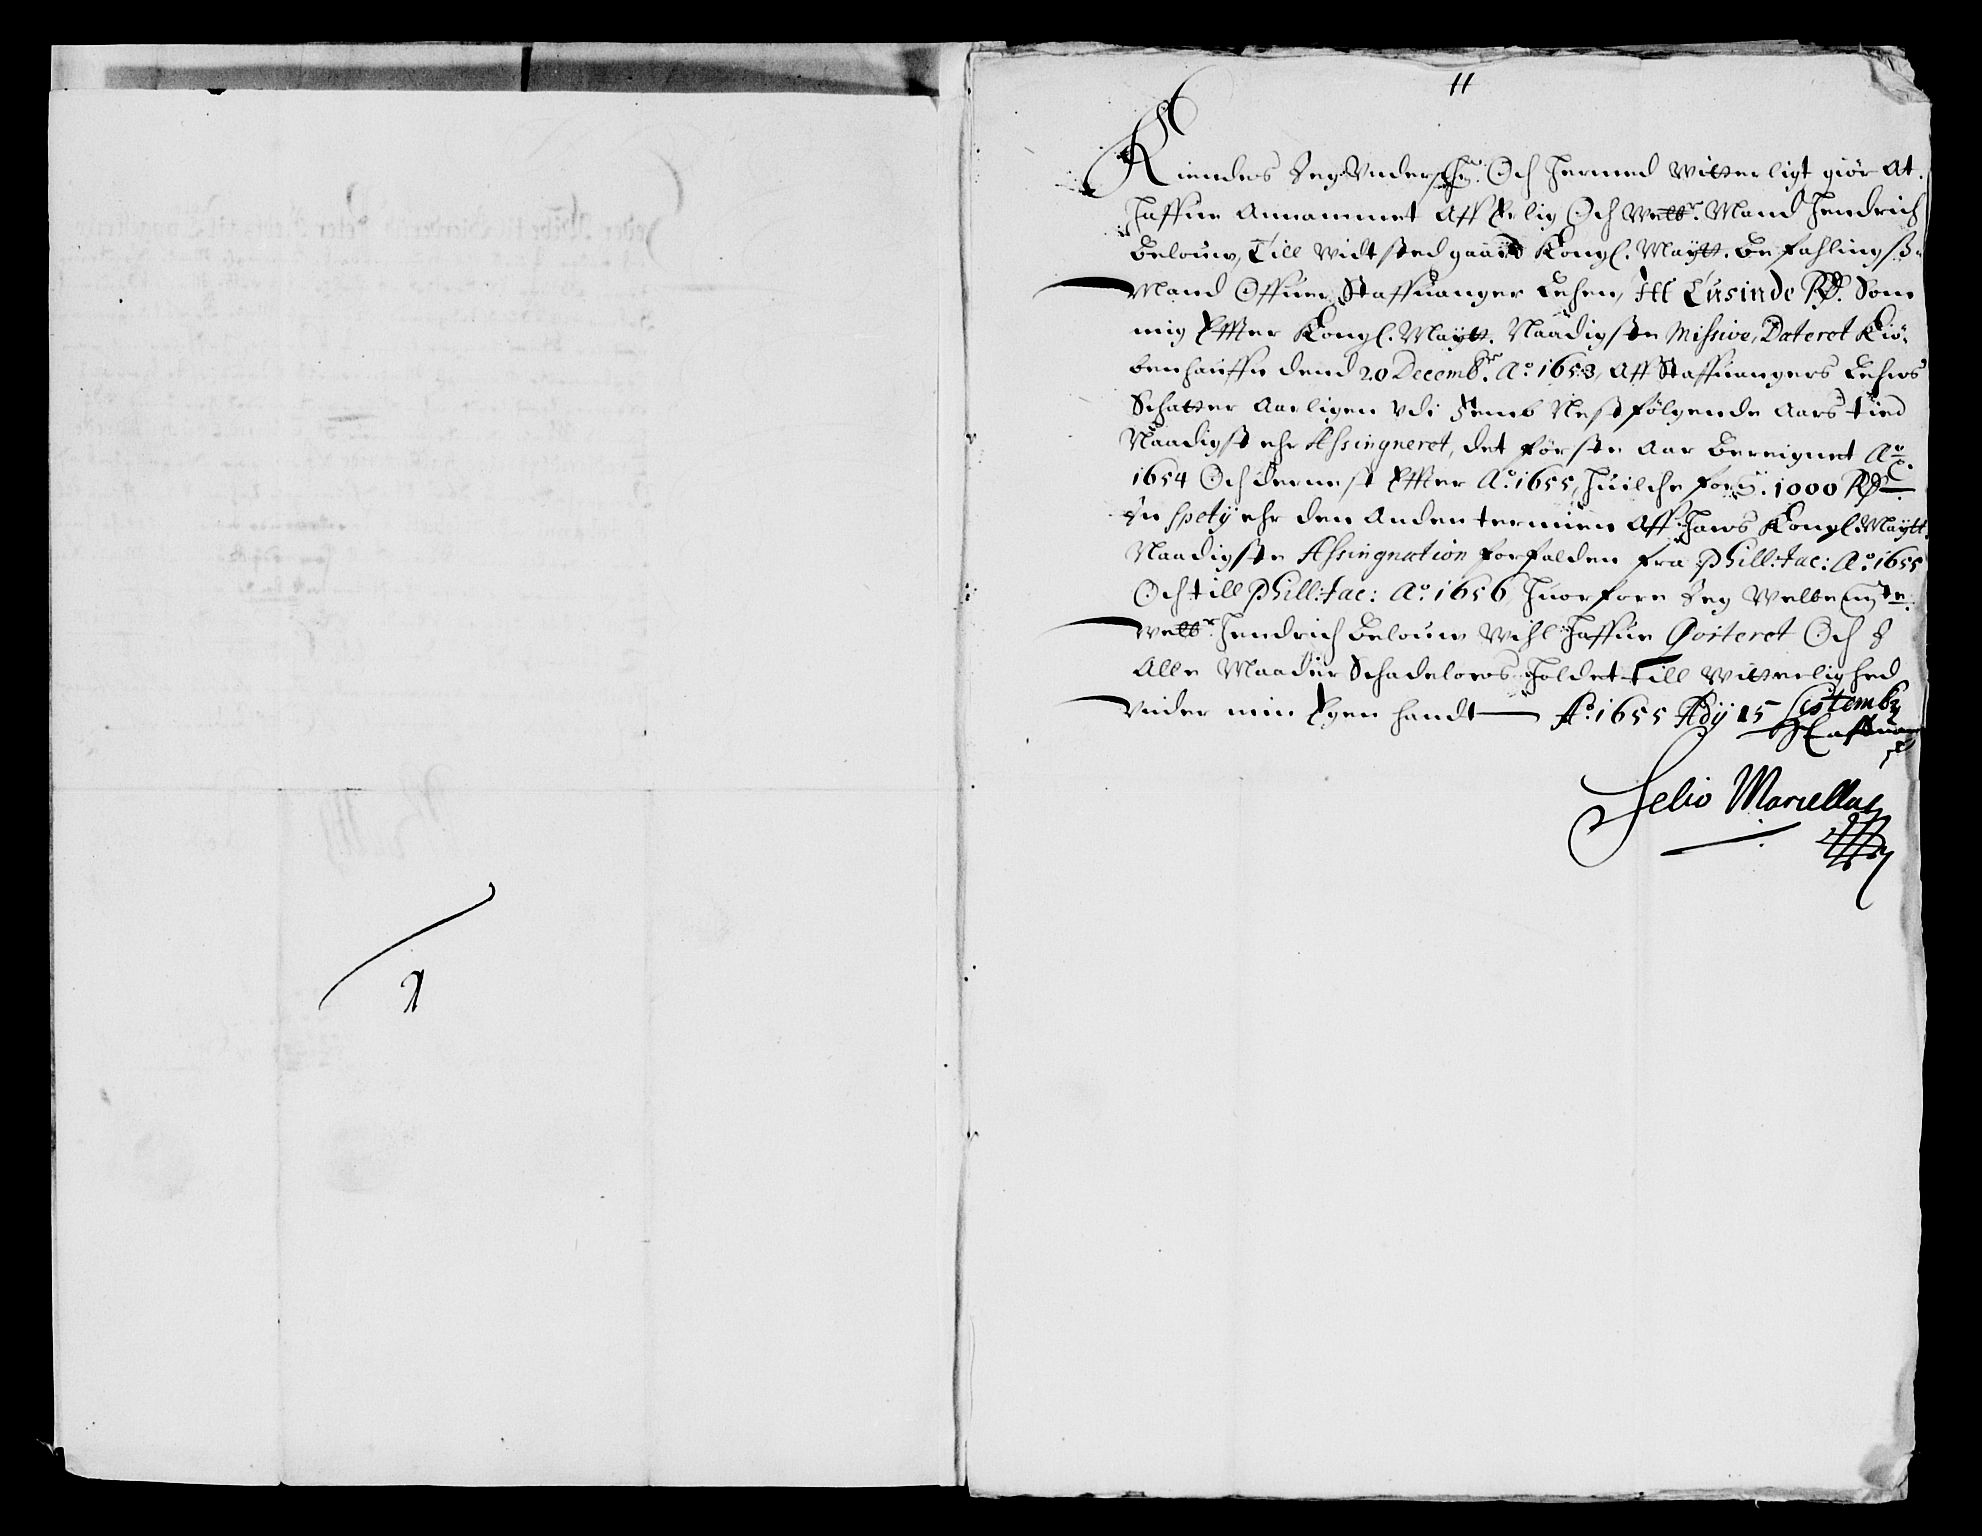 11
Kiendes Jeg Vnderschr. Och hermed Witterligt giør At
haffue Annammet Aff Erlig Och Welbr. Mand Hendrich
Belouw, Till Widtstedgaard Kongl. Maytt. Befahlingsz
Mand Offuer Staffuanger Lehen, It Tusinde Rd. Som
mig Effter Kongl. Maytt. Naadigste Missive, Dateret Kiö-
benhauffn dend 20 Decembr. Ao. 1653, Aff Staffuangers Lehns
Schatter Aarligen Vdi femb Nestfölgende Aars tied
Naadigst ehr Assingneret, det förste Aar Beregnet Ao.
1654 Och dernest Effter Ao. 1655, huilche forn. 1000 Rd
In Spety ehr den Anden termien Aff Hans Kongl. Maytt
Naadigste Assingnation forfalden fra Phill: Jac: Ao. 1655
Och till Phill: Jac: Ao. 1656, huorfore Jeg Welbemte
Welbr. Hendrich Belouw Wihl haffue Qviteret Och J
Alle Maader Schadeloes holdet till Witterlighed
Vnder min Egen handt Ao. 1655 Ady 15 Septembr
Selio Marcellus
1